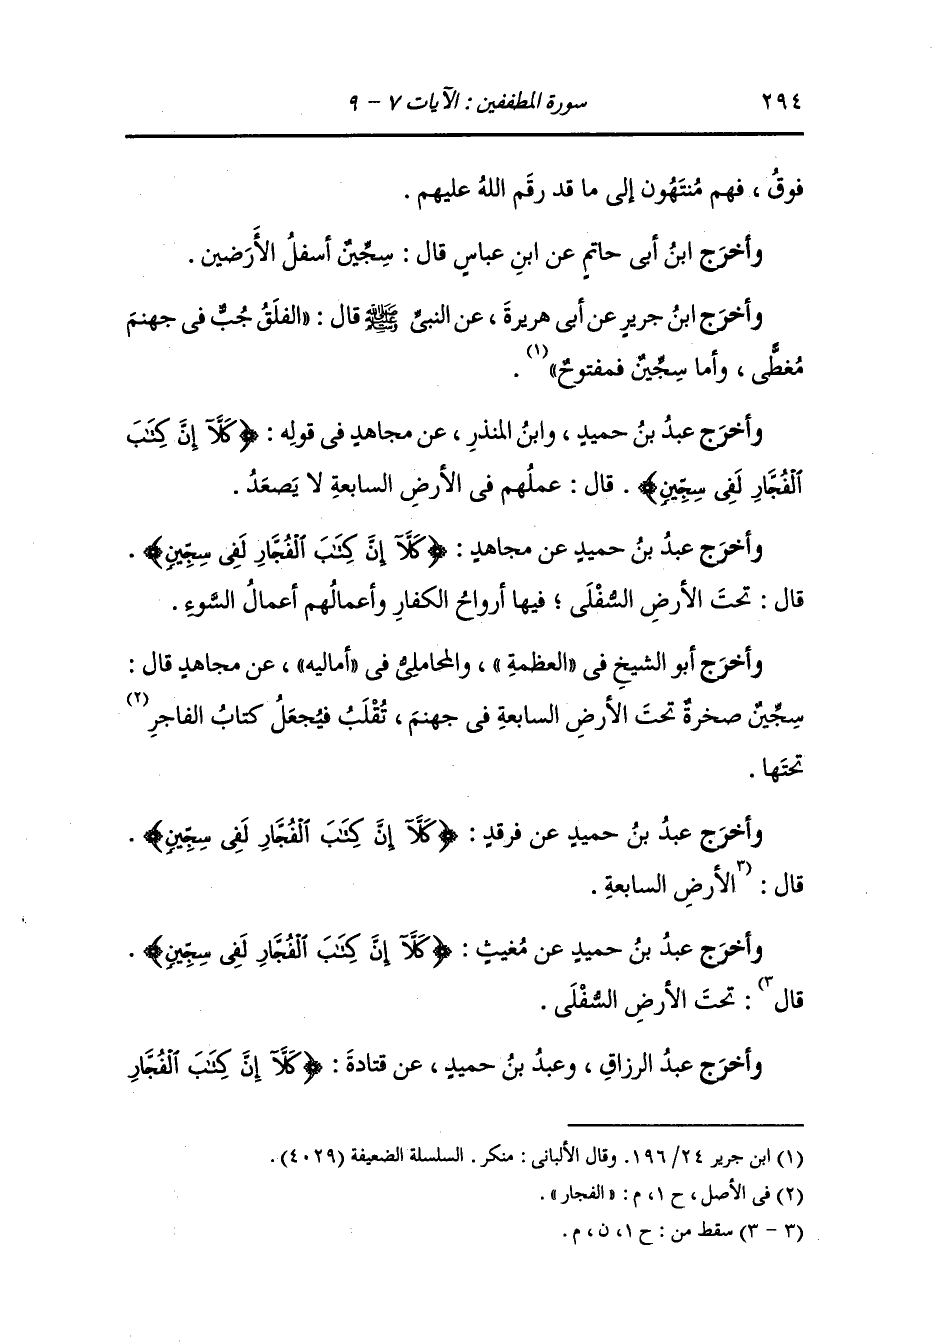 ٢٩٤ سورة المطففين : الآيات ٧ - ٩
فوقُ ، فهم مُنتَهُون إلى ما قد رقَم اللهُ عليهم .
وأخرَج ابنُ أبى حاتمٍ عن ابنِ عباسٍ قال : سِجِّينٌ أسفلُ الأَرَضين .
وأخرَج ابنُ جريرٍ عن أبى هريرةَ ، عن النبىِّ ﷺ قال : «الفلَقُ جُبٌّ فى جهنمَ
مُغطًّى ، وأما سِجِّينٌ فمفتوحٌ»(١) .
وأخرَج عبدُ بنُ حميدٍ ، وابنُ المنذرِ ، عن مجاهدٍ فى قولِه : ﴿كَلَّآ إِنَّ كِتَٰبَ
ٱلْفُجَّارِ لَفِى سِجِّينٍ﴾ . قال : عملُهم فى الأرضِ السابعةِ لا يَصعَدُ .
وأخرَج عبدُ بنُ حميدٍ عن مجاهدٍ : ﴿كَلَّآ إِنَّ كِتَٰبَ ٱلْفُجَّارِ لَفِى سِجِّينٍ﴾ .
قال : تحتَ الأرضِ السُّفْلَى ؛ فيها أرواحُ الكفارِ وأعمالُهم أعمالُ السُّوءِ .
وأخرَج أبو الشيخِ فى «العظمةِ» ، والمحاملىُّ فى «أماليه» ، عن مجاهدٍ قال :
سِجِّينٌ صخرةٌ تحتَ الأرضِ السابعةِ فى جهنمَ ، تُقْلَبُ فيُجعَلُ كتابُ الفاجرِ(٢)
تحتَها .
وأخرَج عبدُ بنُ حميدٍ عن فرقدٍ : ﴿كَلَّآ إِنَّ كِتَٰبَ ٱلْفُجَّارِ لَفِى سِجِّينٍ﴾ .
قال : (٣الأرضِ السابعةِ .
وأخرَج عبدُ بنُ حميدٍ عن مُغيثٍ : ﴿كَلَّآ إِنَّ كِتَٰبَ ٱلْفُجَّارِ لَفِى سِجِّينٍ﴾ .
قال٣) : تحتَ الأرضِ السُّفْلَى .
وأخرَج عبدُ الرزاقِ ، وعبدُ بنُ حميدٍ ، عن قتادةَ : ﴿كَلَّآ إِنَّ كِتَٰبَ ٱلْفُجَّارِ
(١) ابن جرير ٢٤/ ١٩٦. وقال الألبانى : منكر . السلسلة الضعيفة (٤٠٢٩) .
(٢) فى الأصل ، ح ١، م : « الفجار » .
(٣ - ٣) سقط من : ح ١، ن ، م .